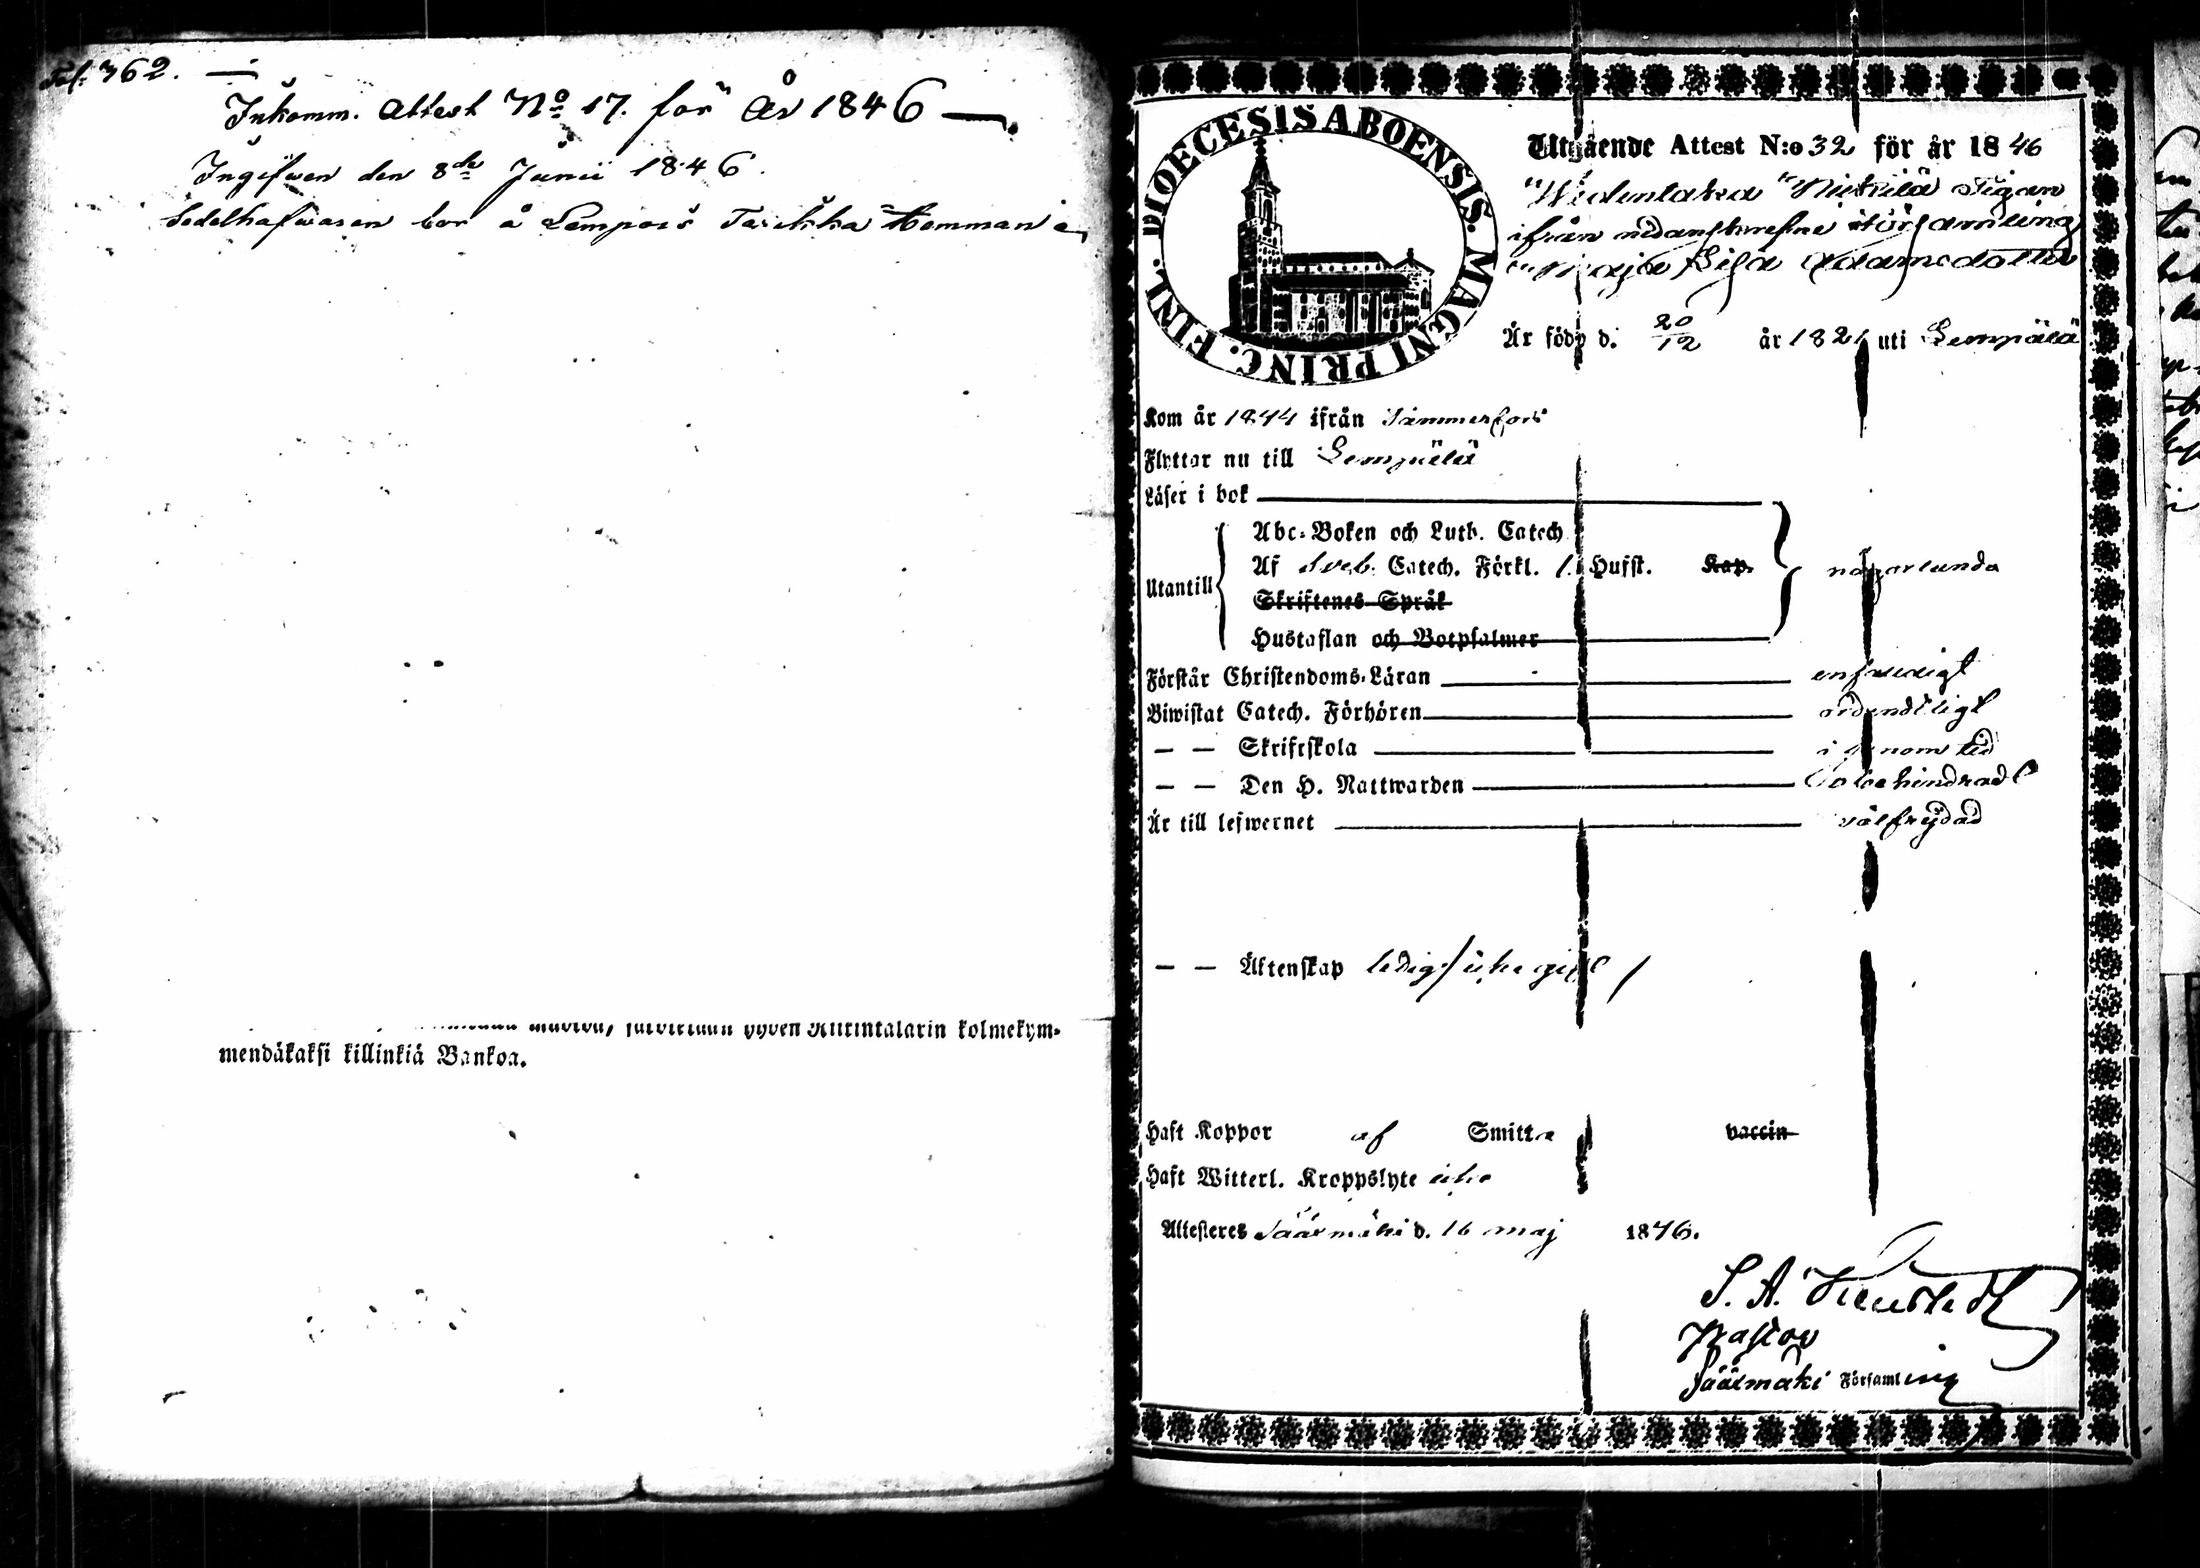 Fol. 362.
Inkomm. Attest No 17. för År 1846
Ingifven den 8de Junii 1846.
Sedelhafvaren bor å Lempois Hemman
kolmekym-
mendäkaksi killinkiä Bankoa.
DIOECESIS ABOENSIS. MAGNI PRINC. FINL.
Utgående Attest N:o 32 för år 1846
ifrån församling
Maja Lisa Adamsdotter
Är född d. 20/12 år 1821 uti Lempälä
Kom år 1844 ifrån Tammerfors
Flyttar nu till Lempälä
Läser i bok
Utantill
Abc-Boken och Luth. Catech
Af Sveb. Catech. Förkl. 1. Hufst. Kap.
någorlunda
Skriftenes Språk
Hustaflan och Botpsalmer
Förstår Christendoms-Läran enfaldigt
Biwistat Catech. Förhören ordentligt
— — Skriftskola i genom tid
— — Den H. Nattwarden obehindradt
Är till lefwernet välfrejdad
— — Äktenskap ledig / icke gift /
Haft Koppor af Smitta vaccin
Haft Witterl. Kroppslyte icke
Attesteres Säärmäki d. 16 maj 1846.
S. A.
Pastor
Säärmäki Församling